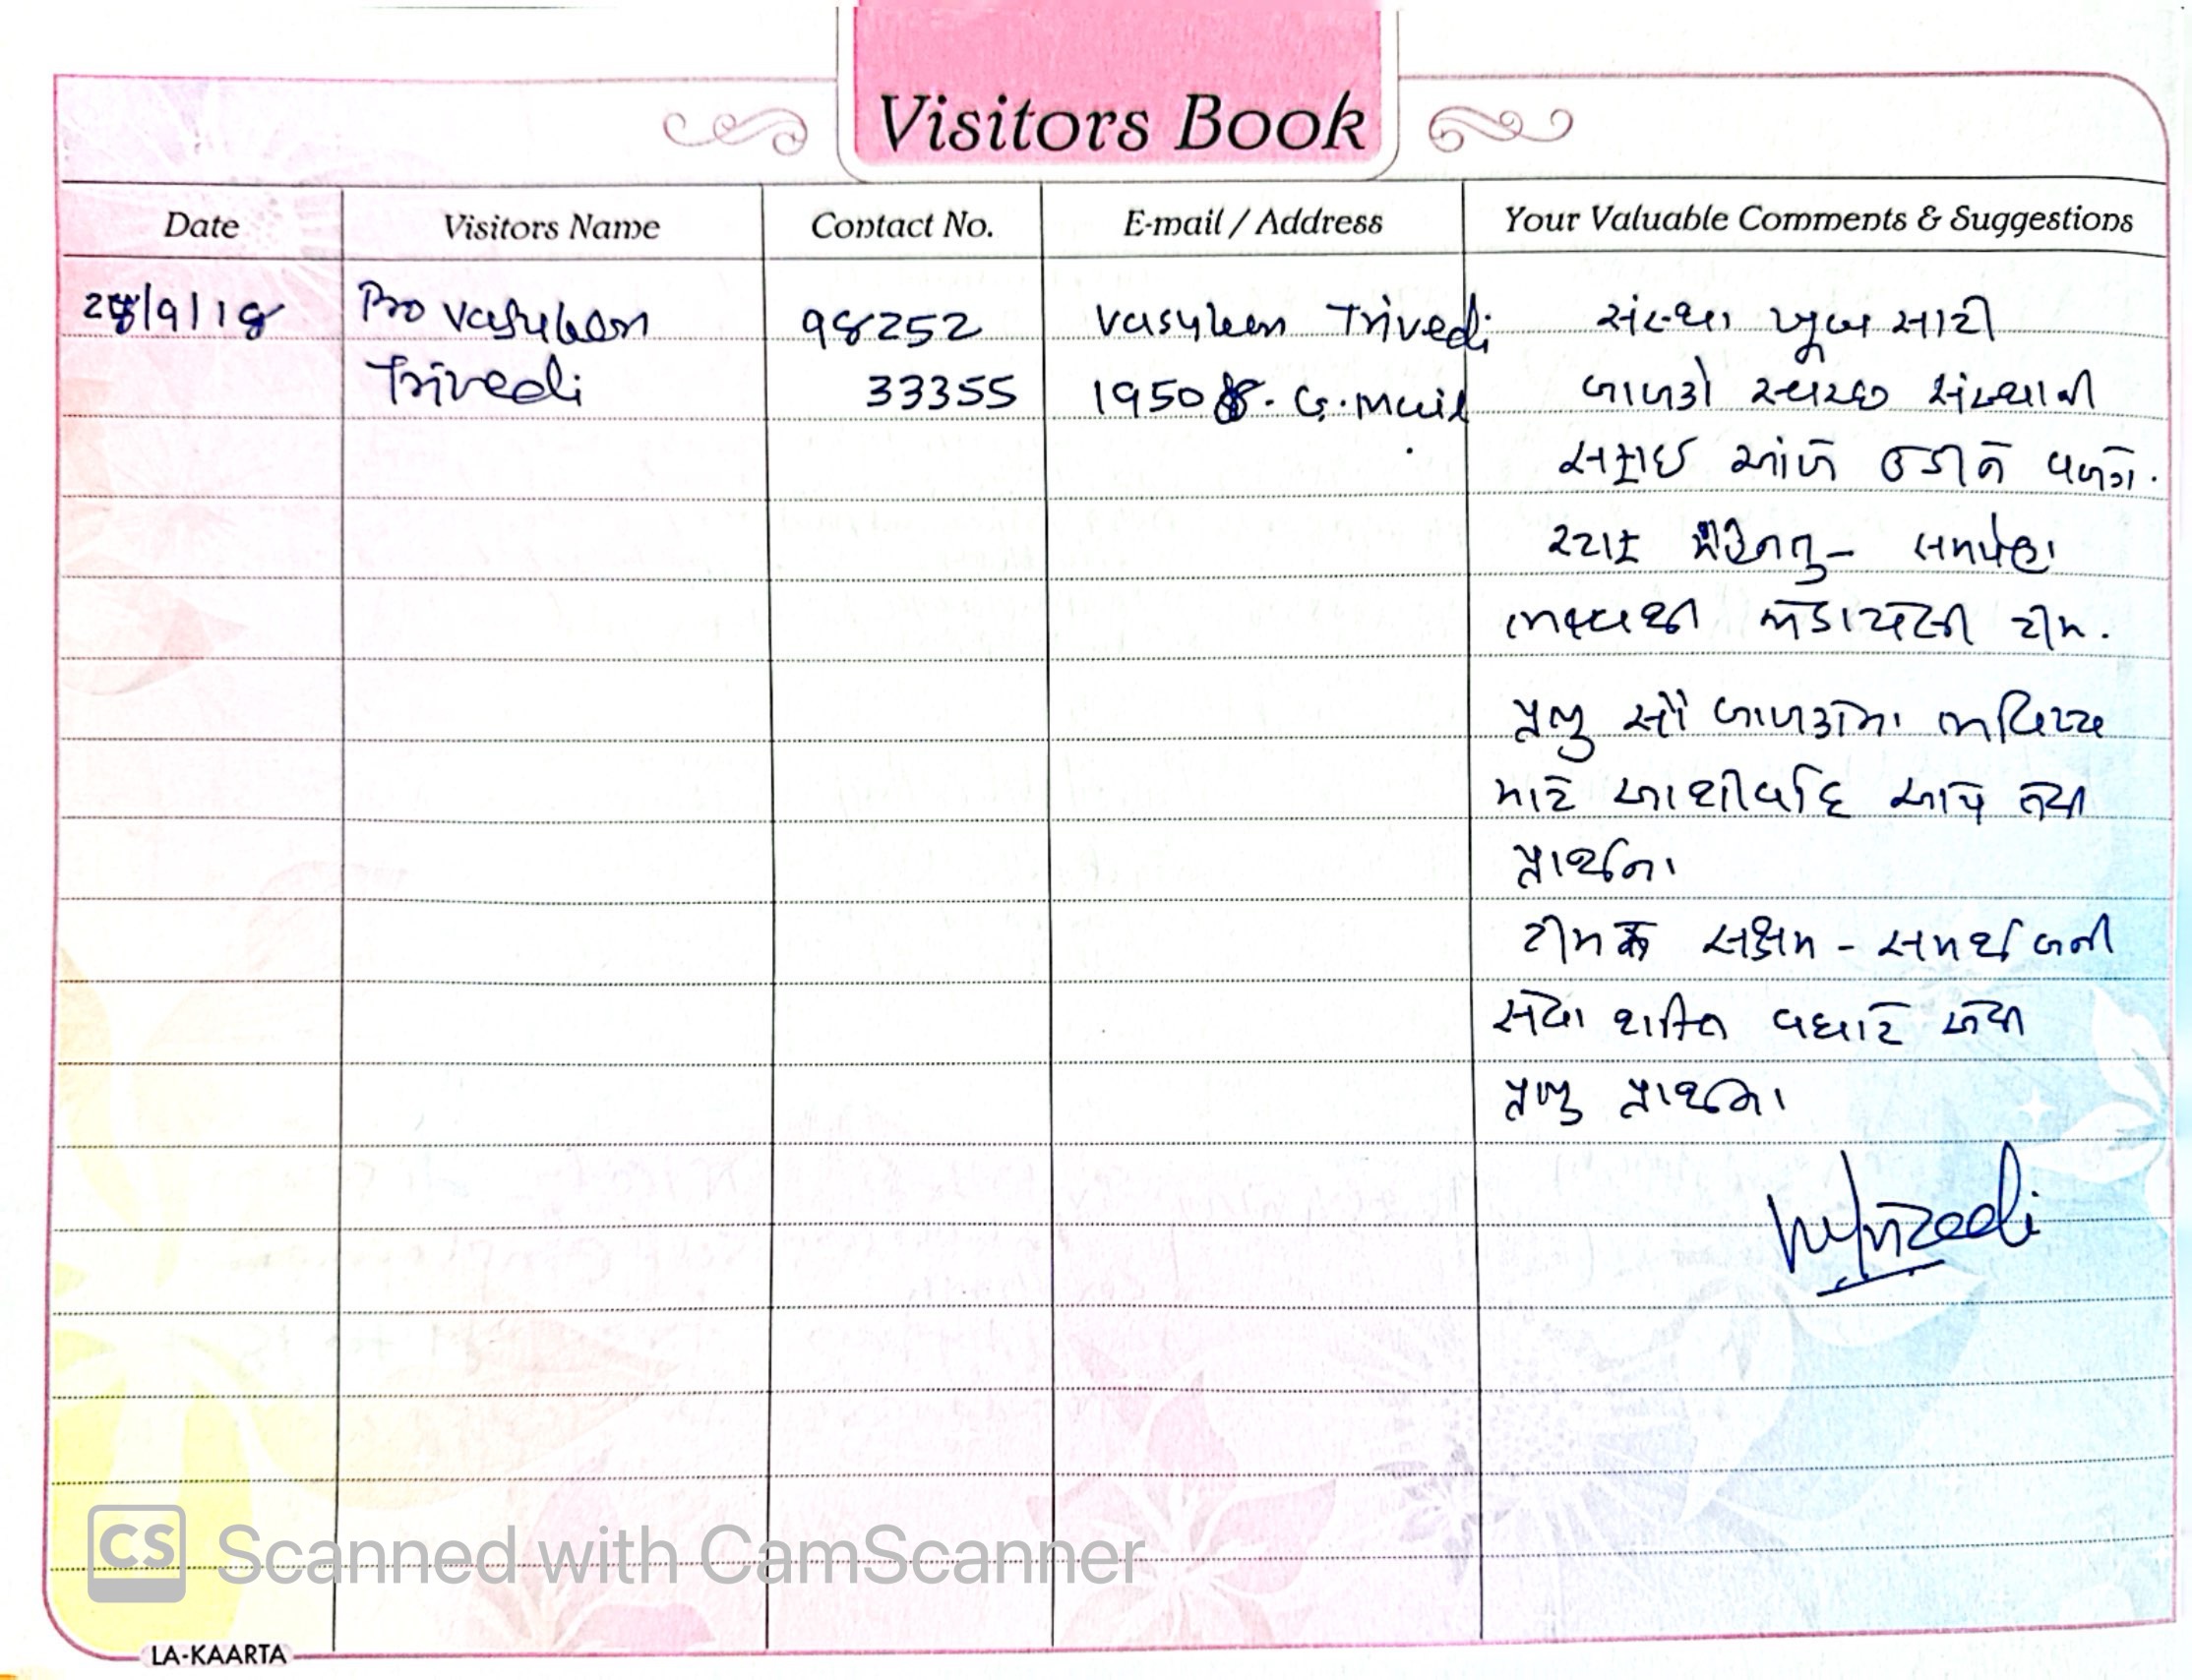 Visitors Book
Date Visitors Name Contact No. E-mail / Address Your Valuable Comments & Suggestions
28/9/18 Pro Vasuben 98252 vasuben Trivedi સંસ્થા ખૂબ સારી
Trivedi 33355 1950 G.mail બાળકો સ્વચ્છ સંસ્થાની
સફાઈ આંખે ઉડીને વળગે.
સ્ટાફ મહેનતુ - સમર્પણ
ભાવથી જોડાયેલી ટીમ.
પ્રભુ સૌ બાળકોના ભવિષ્ય
માટે આશીર્વાદ આપે તેવી
પ્રાર્થના
ટીમ સક્ષમ - સમર્થ બની
સેવા શક્તિ વધારે એવી
પ્રભુ પ્રાર્થના
CS Scanned with CamScanner
LA-KAARTA